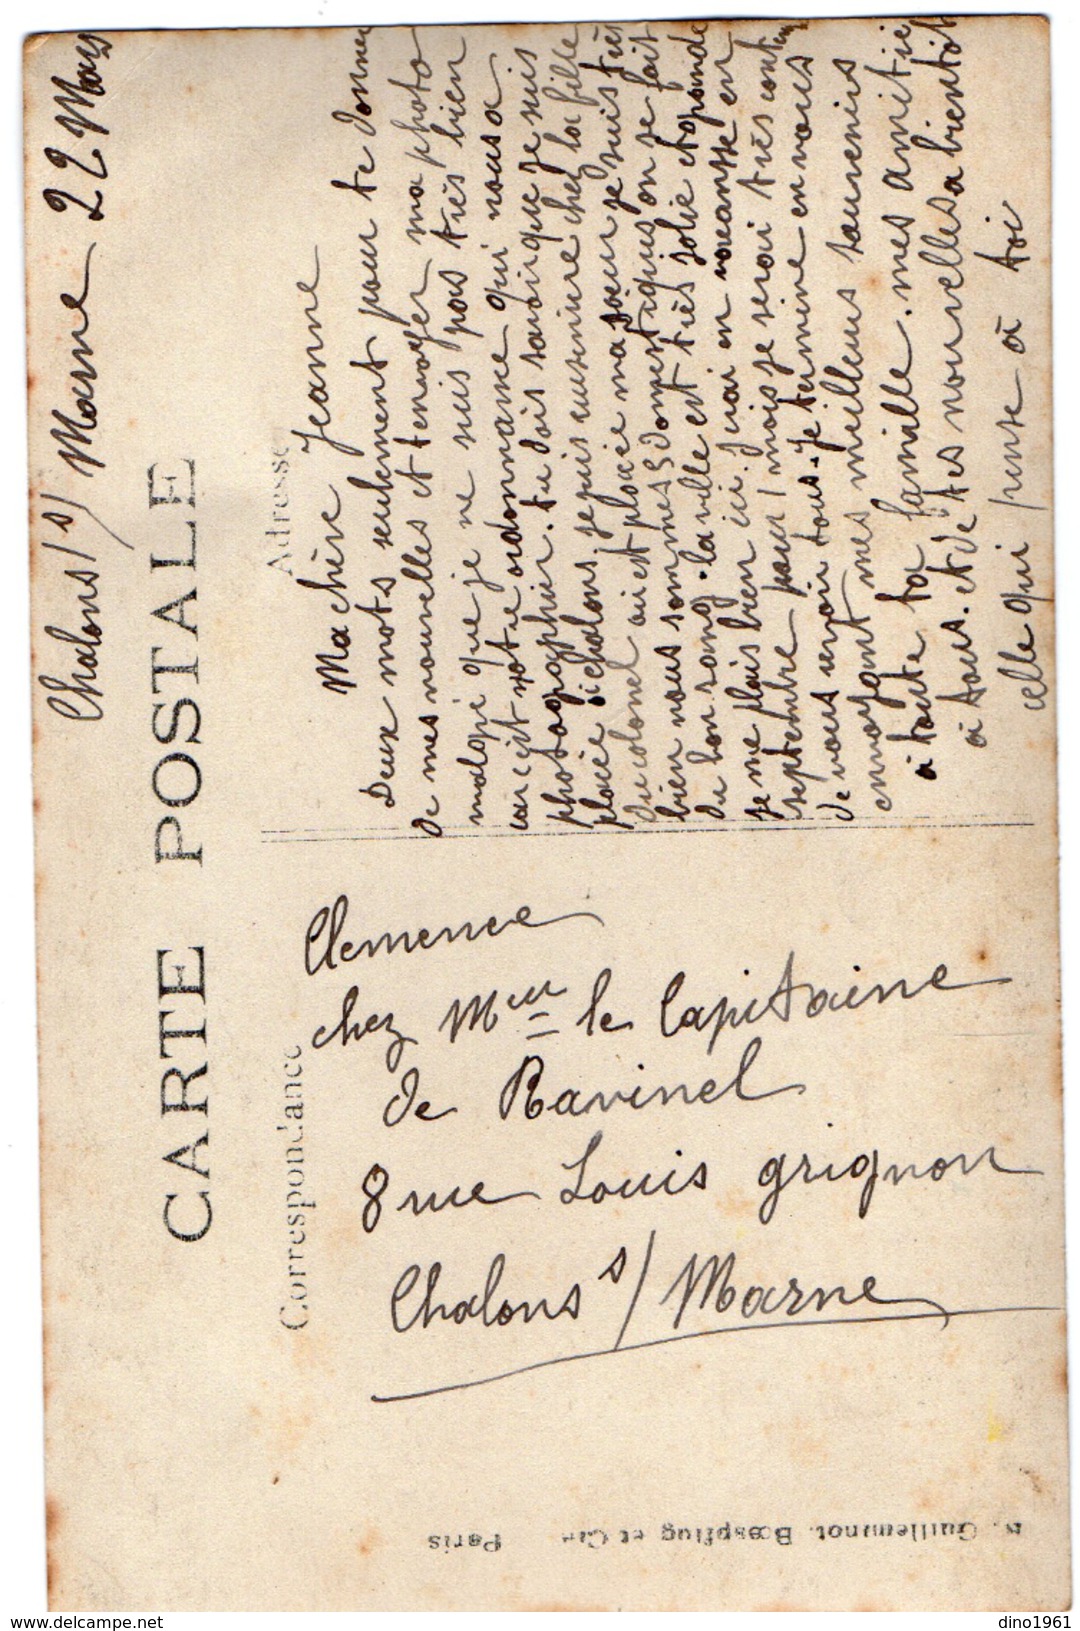 Chalons s/ Marne 22 Mars
CARTE POSTALE
Correspondance
Adresse
Ma chère Jeanne
Deux mots seulement pour te donner
de mes nouvelles et t'envoyer ma photo
malgré que je ne suis pas très bien
car c'est notre ordonnanse qui nous a
photographier. tu dois savoir que je suis
placée a chalons, je suis cusiniere chez la fille
du colonel ou est placée ma sœur je suis très
bien nous sommes 5 domestiques on se fait
du bon sang. la ville est très jolie et grande
je me plais bien ici. J'irai en vacansse en
septembre pour 1 mois je serai très content
de vous revoir tous. Je termine en vous
envoyant mes meilleurs souvenirs
à toute ta famille. mes amitié
à tous. et de tes nouvelles a bientôt
celle qui pense à toi
Clemence
chez Mme le Capitaine
de Ravinel
8 rue Louis grignon
Chalons s/ Marne
Guilleminot, Bœspflug et Cie Paris
dino1961